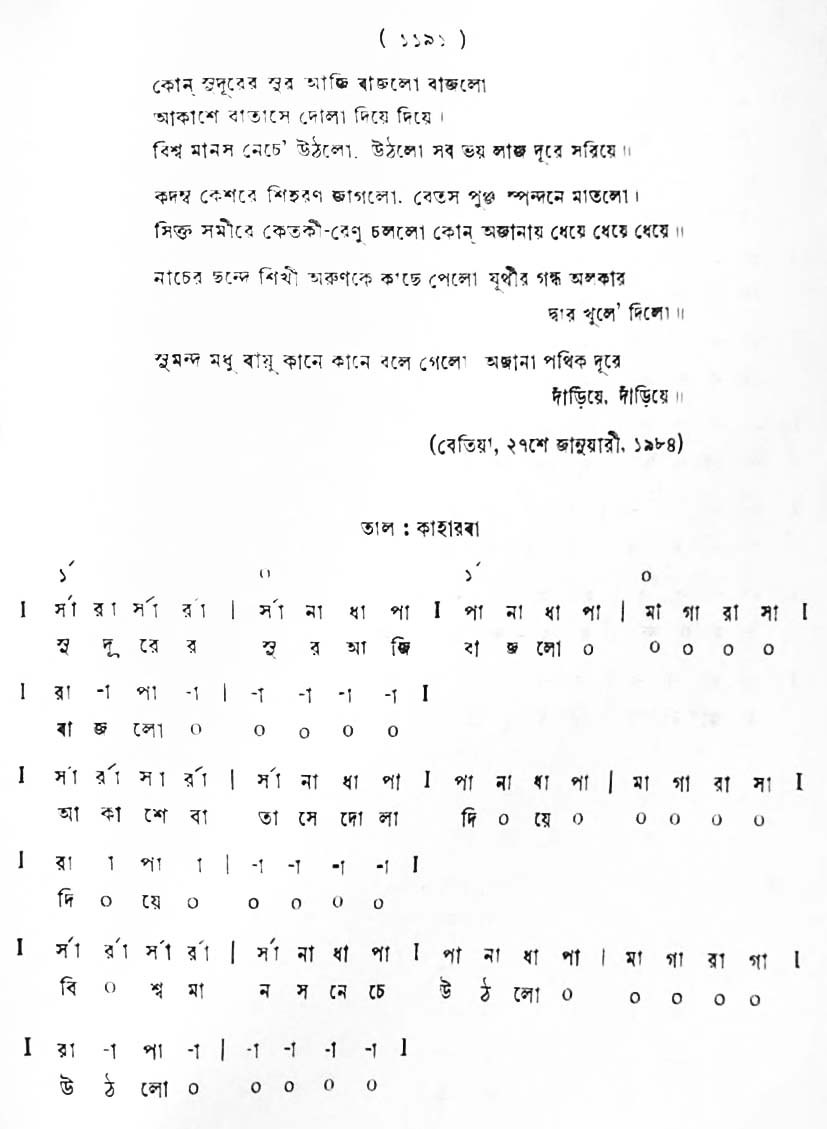 ( ১১৯১ )
কোন্ সুদূরের সুর আজি বাজলো বাজলো
আকাশে বাতাসে দোলা দিয়ে দিয়ে।
বিশ্ব মানস নেচে' উঠলো, উঠলো সব ভয় লাজ দূরে সরিয়ে॥
কদম্ব কেশরে শিহরণ জাগলো, বেতস পুঞ্জ স্পন্দনে মাতলো।
সিক্ত সমীরে কেতকী-রেণু চললো কোন্ অজানায় ধেয়ে ধেয়ে ধেয়ে॥
নাচের ছন্দে শিখী অরুণকে কাছে পেলো যূথীর গন্ধ অলকার
দ্বার খুলে' দিলো॥
সুমন্দ মধু বায়ু কানে কানে বলে গেলো অজানা পথিক দূরে
দাঁড়িয়ে, দাঁড়িয়ে॥
(বেতিয়া, ২৭শে জানুয়ারী, ১৯৮৪)
তাল : কাহারবা
১´ ০ ১´ ০
I র্সা রা র্সা র্রা | র্সা না ধা পা I পা না ধা পা | মা গা রা সা I
সু দূ রে র সু র আ জি বা জ লো ০ ০ ০ ০ ০
I রা -া পা -া | -া -া -া -া I
বা জ লো ০ ০ ০ ০ ০
I র্সা র্রা সা র্রা | র্সা না ধা পা I পা না ধা পা | মা গা রা সা I
আ কা শে বা তা সে দো লা দি ০ য়ে ০ ০ ০ ০ ০
I রা া পা া | -া -া -া -া I
দি ০ য়ে ০ ০ ০ ০ ০
I র্সা র্রা র্সা র্রা | র্সা না ধা পা I পা না ধা পা | মা গা রা গা I
বি ০ শ্ব মা ন স নে চে উ ঠ লো ০ ০ ০ ০ ০
I রা -া পা -া | -া -া -া -া I
উ ঠ লো ০ ০ ০ ০ ০